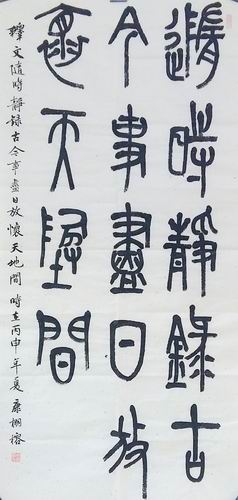 隨時靜錄古
今事盡日放
懷天地間
釋文隨時靜錄古今事盡日放懷天地間 時在丙申年夏 康栩榕